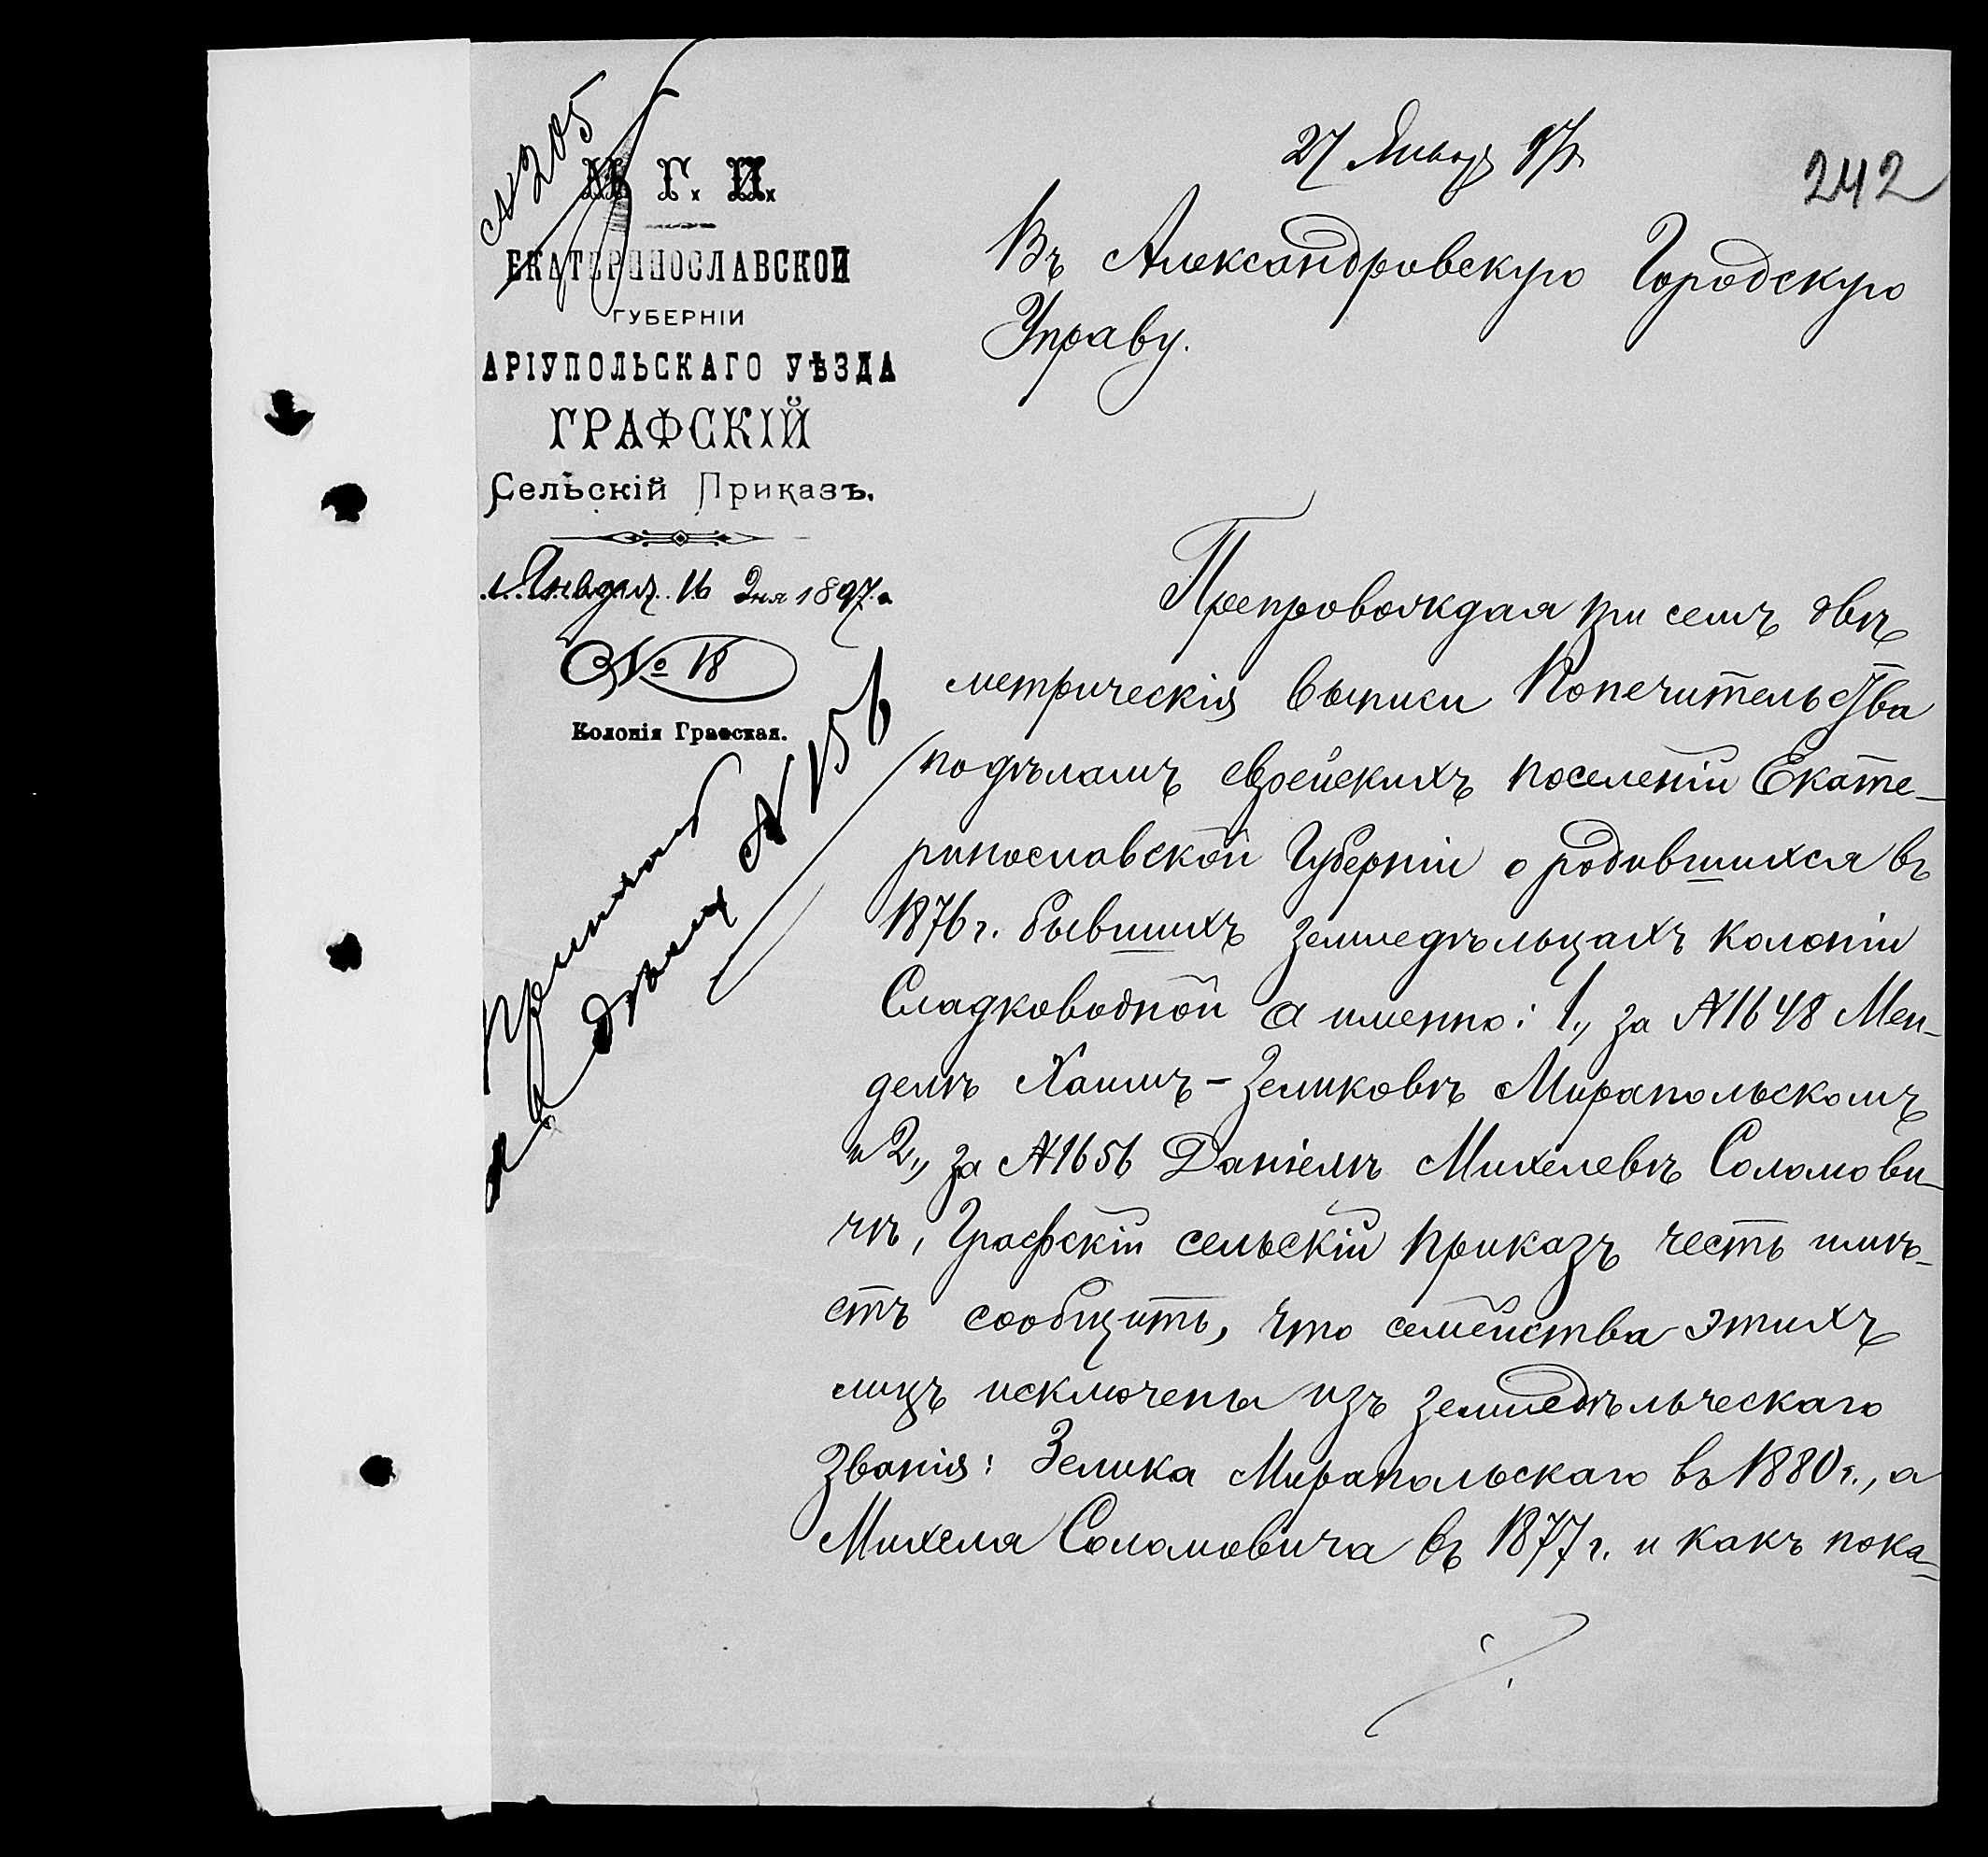 № 205
М. Г. И.
ЕКАТЕРИНОСЛАВСКОЙ
ГУБЕРНІИ
АРІУПОЛЬСКАГО УѢЗДА
ГРАФСКІЙ
Сельскій Приказъ.
Января 16 дня 1897 г.
№ 18
Колонія Графская.
дѣлу № 156
27 Января 97 г.
242
Въ Александровскую Городскую
Управу.
Препровождая при семъ двѣ
метрическія выписи Попечительства
по дѣламъ еврейскихъ поселеній Екате-
ринославской Губерніи о родившихся въ
1876 г. бывшихъ земледѣльцахъ колоніи
Сладководной а именно: 1., за № 1648 Мен-
делѣ Хаимъ-Зеликовѣ Мирапольскомъ
и 2., за № 1656 Даніелѣ Михелевѣ Соломови-
чѣ, Графскій сельскій приказъ честь имѣ-
етъ сообщить, что семейства этихъ
лицъ исключены изъ земледѣльческаго
званія: Зелика Мирапольскаго въ 1880 г., а
Михеля Соломовича въ 1877 г. и какъ пока-